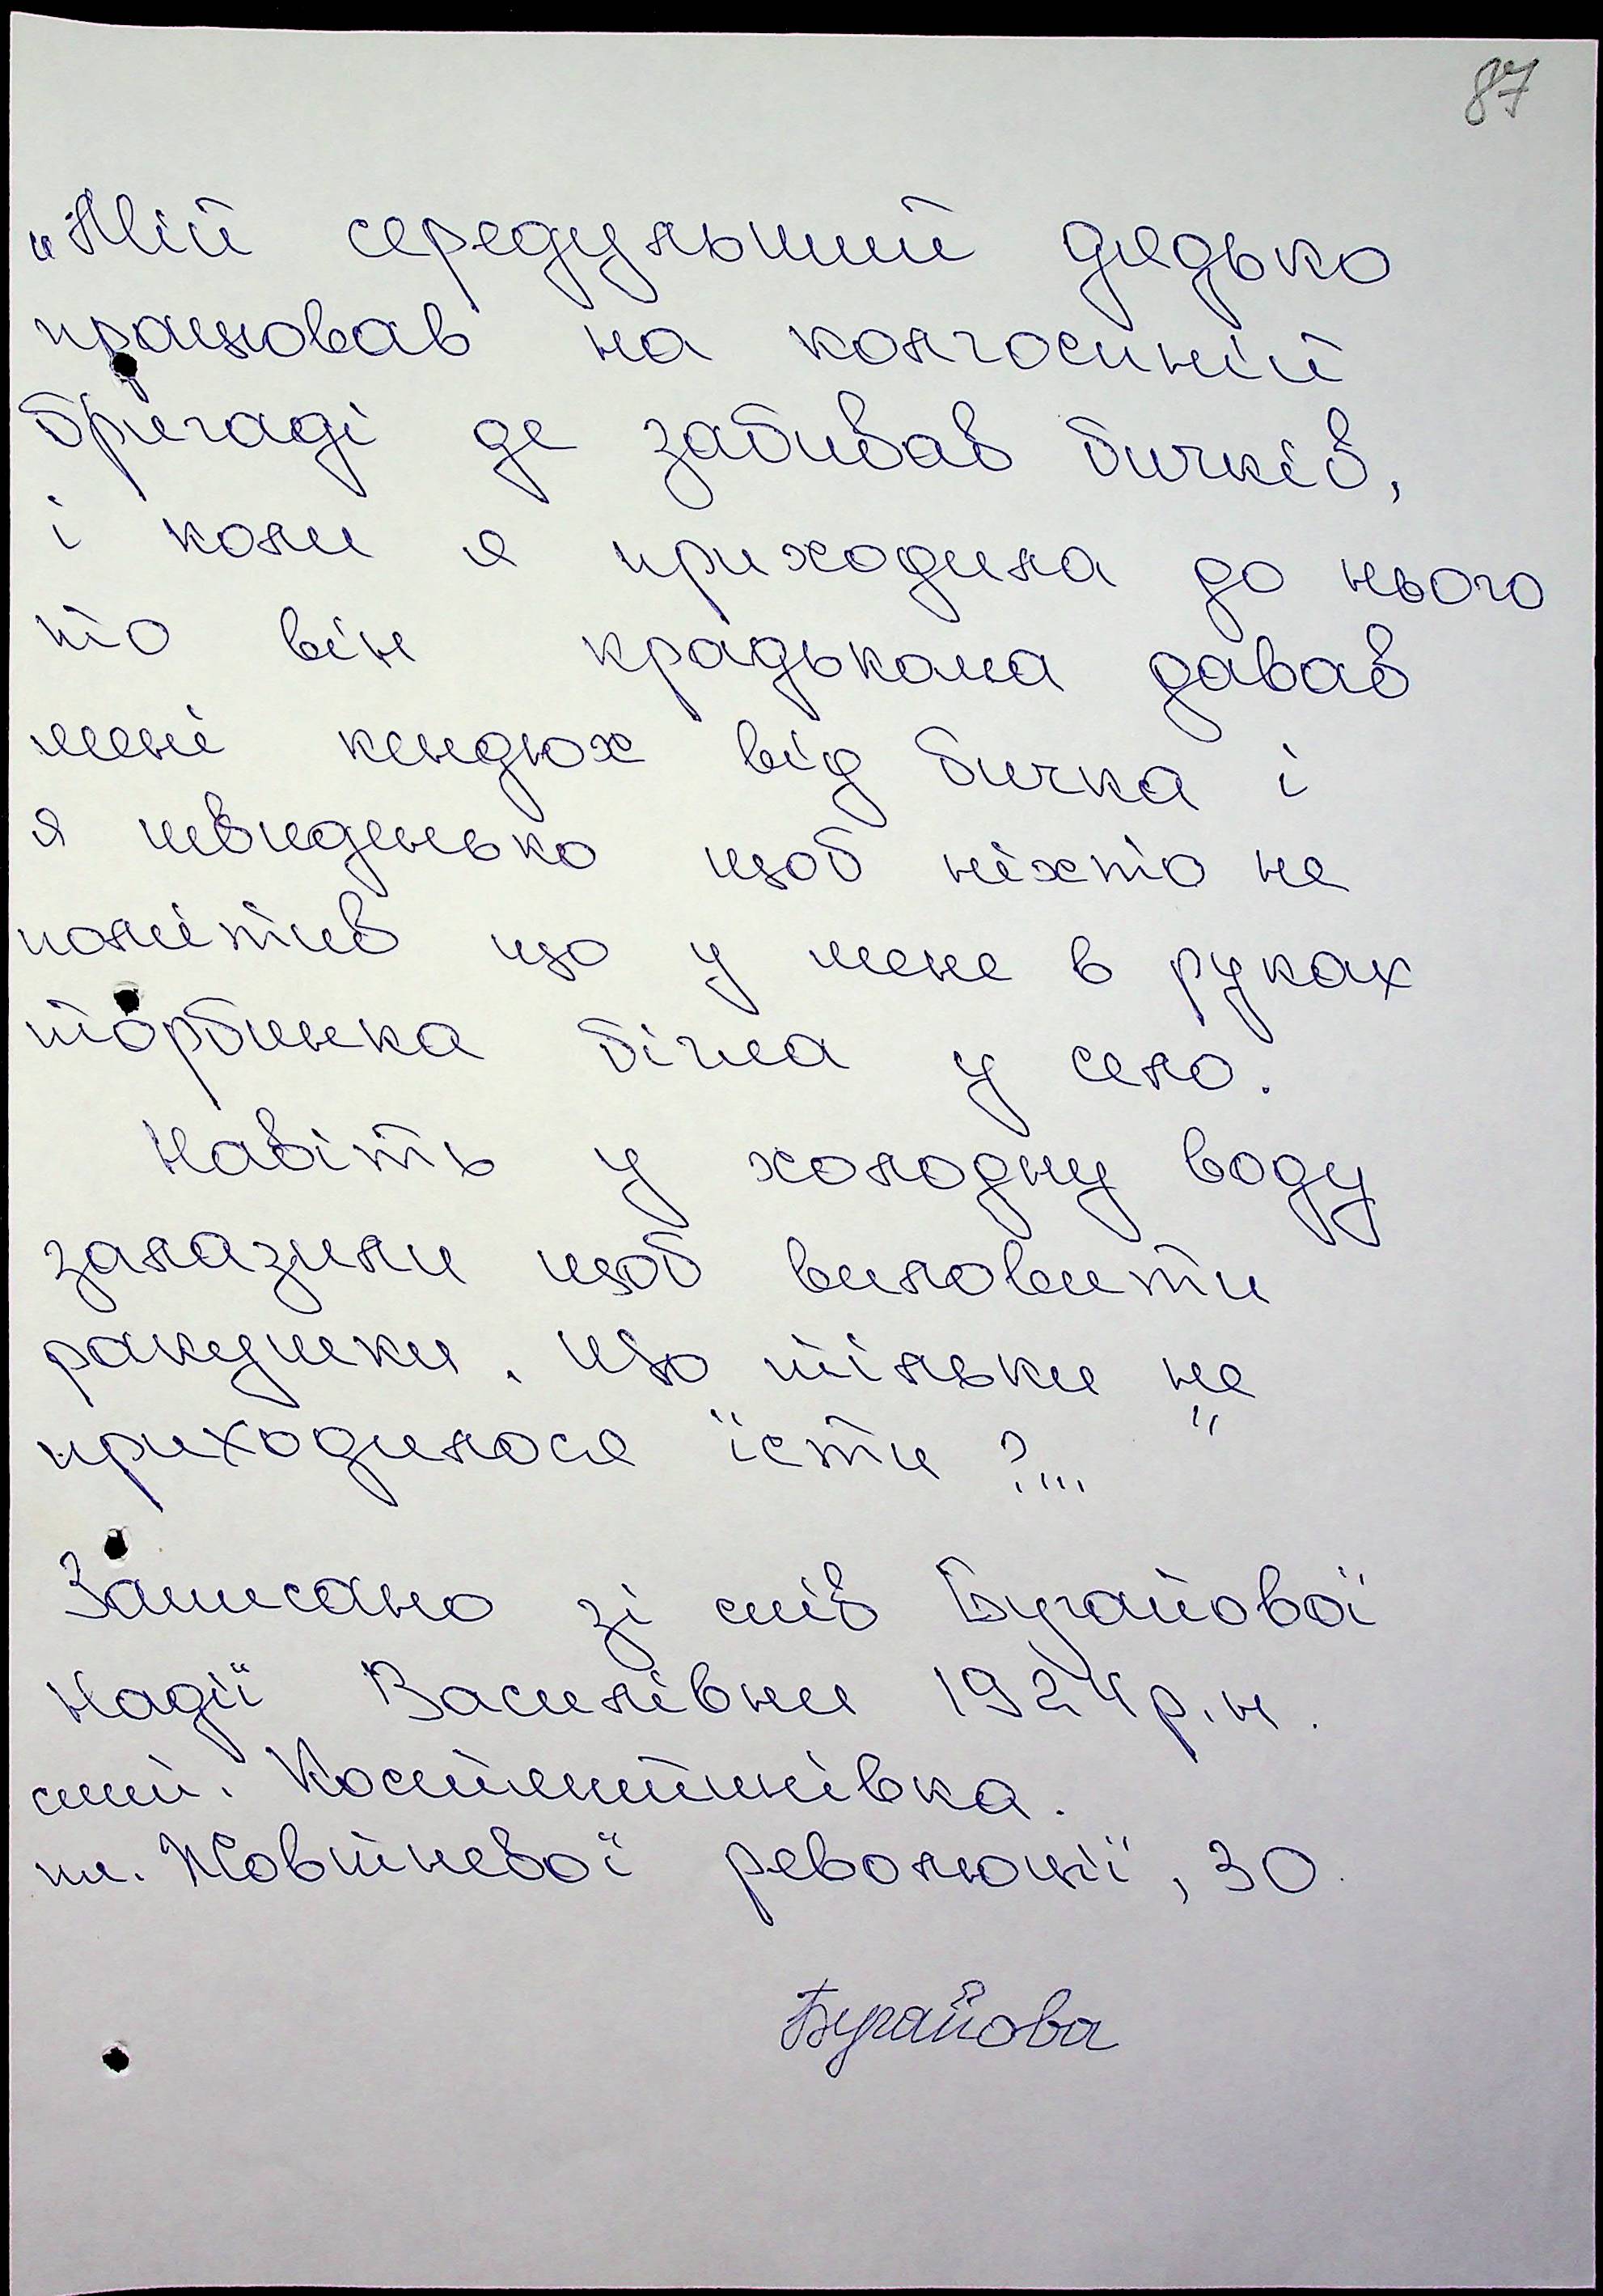 87
„Мій середульший дядько
працював на колгоспній
бригаді де забивав бичків,
і коли я приходила до нього
то він крадькома давав
мені кендюх від бичка і
я швиденько щоб ніхто не
помітив що у мене в руках
торбинка бігла у село.
Навіть у холодну воду
залазили щоб виловити
ракушки. Що тільки не
приходилося їсти?..."
Записано зі слів Бугайової
Надії Василівни 1924 р.н.
смт. Костянтинівка.
пл. Жовтневої революції, 30.
Бугайова